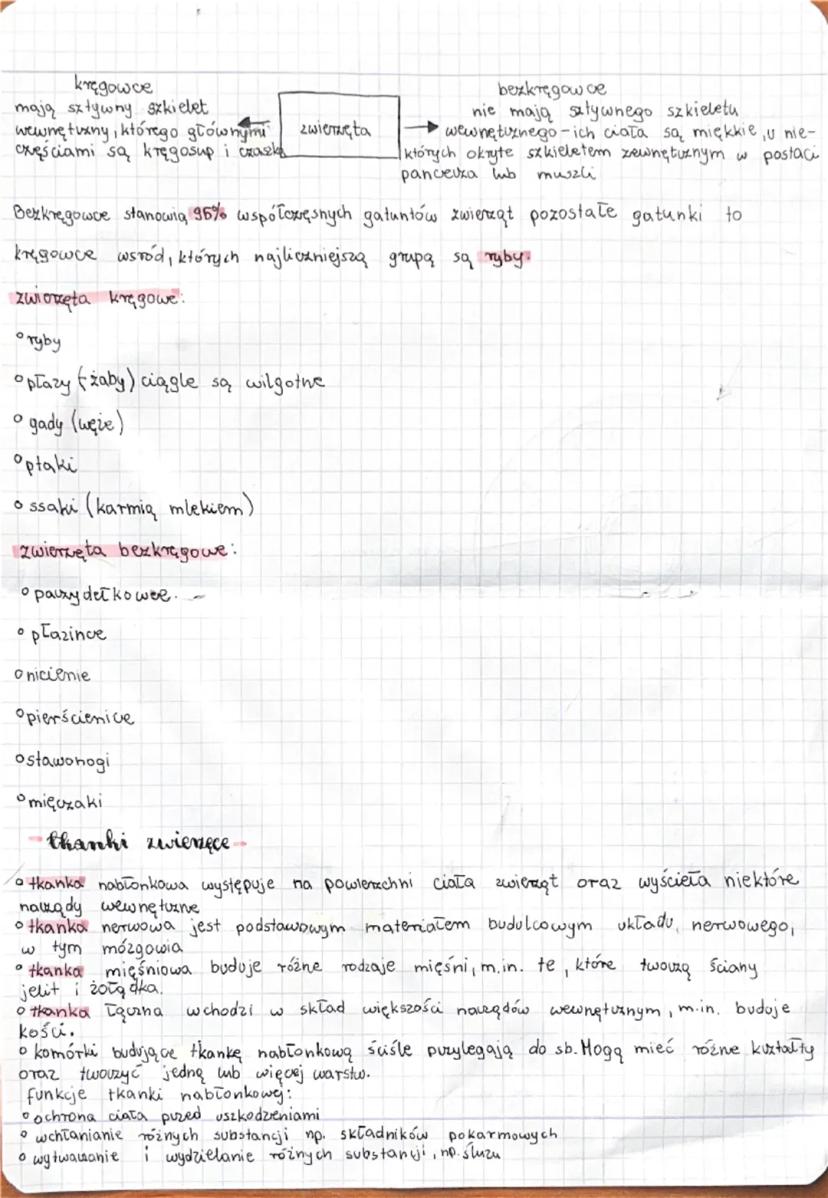 kręgowce
mają sztywny szkielet
wewnętrzny, którego głównymi
częściami są kręgosup i czaszka
zwierzęta
bezkręgowce
nie mają sztywnego szkieletu
wewnętrznego - ich ciała są miękkie, u nie-
których okryte szkieletem zewnętrznym w postaci
pancerza lub muszli
Bezkręgowce stanowią 96% współczęsnych gatuntów zwierząt pozostałe gatunki to
kręgowce wsród, których najliczniejszą grupą są ryby.
zwierzęta kręgowe:
° ryby
° płazy (-żaby) ciągle są wilgotne
° gady (węże)
° ptaki
° ssaki (karmią mlekiem)
zwierzęta bezkręgowe:
° parzydełkowce. -
° płazince
° nicienie
° pierścienice
° stawonogi
° mięczaki
- tkanki zwierzęce -
° tkanka nabłonkowa występuje na powierzchni ciała zwierząt oraz wyścieła niektóre
narządy wewnętrzne
° tkanka nerwowa jest podstawowym materiałem budulcowym układu nerwowego,
w tym mózgowia
° tkanka mięśniowa buduje różne rodzaje mięśni, m.in. te, które tworzą ściany
jelit i żołądka.
° tkanka łączna wchodzi w skład większości narządów wewnętrznym, m.in. buduje
kości.
° komórki budujące tkankę nabłonkową ściśle przylegają do sb. Mogą mieć różne kształty
oraz tworzyć jedną lub więcej warstw.
funkcje tkanki nabłonkowej:
° ochrona ciała przed uszkodzeniami
° wchłanianie różnych substancji np. składników pokarmowych
° wytwarzanie i wydzielanie różnych substancji, np. śluzu